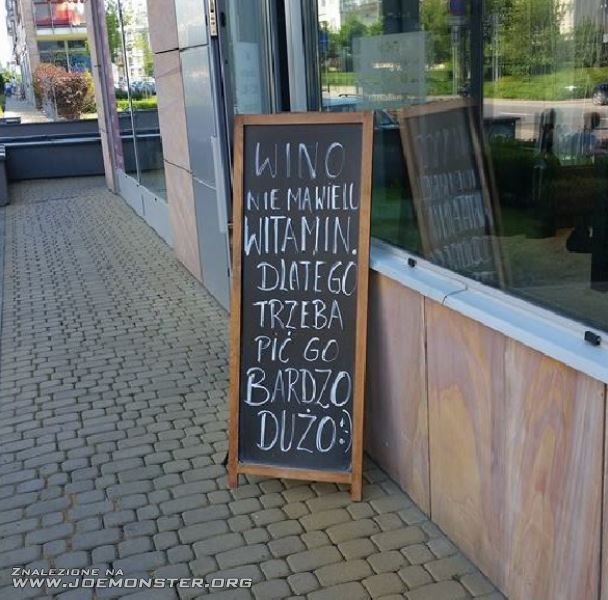 WINO
NIE MA WIELU
WITAMIN.
DLATEGO
TRZEBA
PIĆ GO
BARDZO
DUŻO:)
ZNALEZIONE NA
WWW.JOEMONSTER.ORG